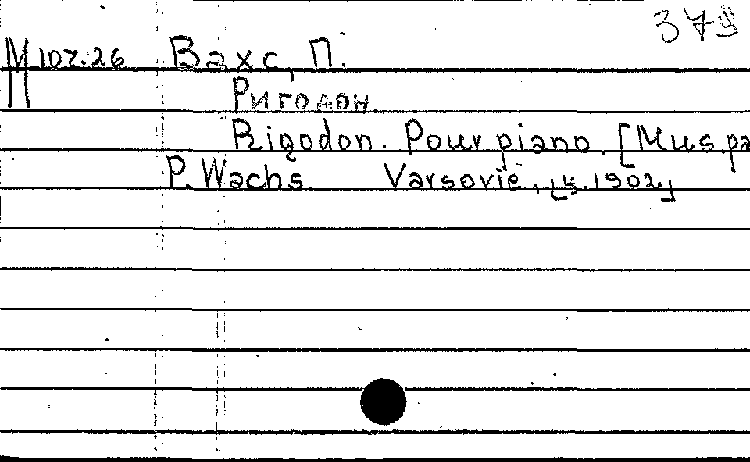 379
М 107.26 Вахс, П.
Ригодон.
Rigodon. Pour piano. [Mus pa
P. Wachs Varsovie, 1902]